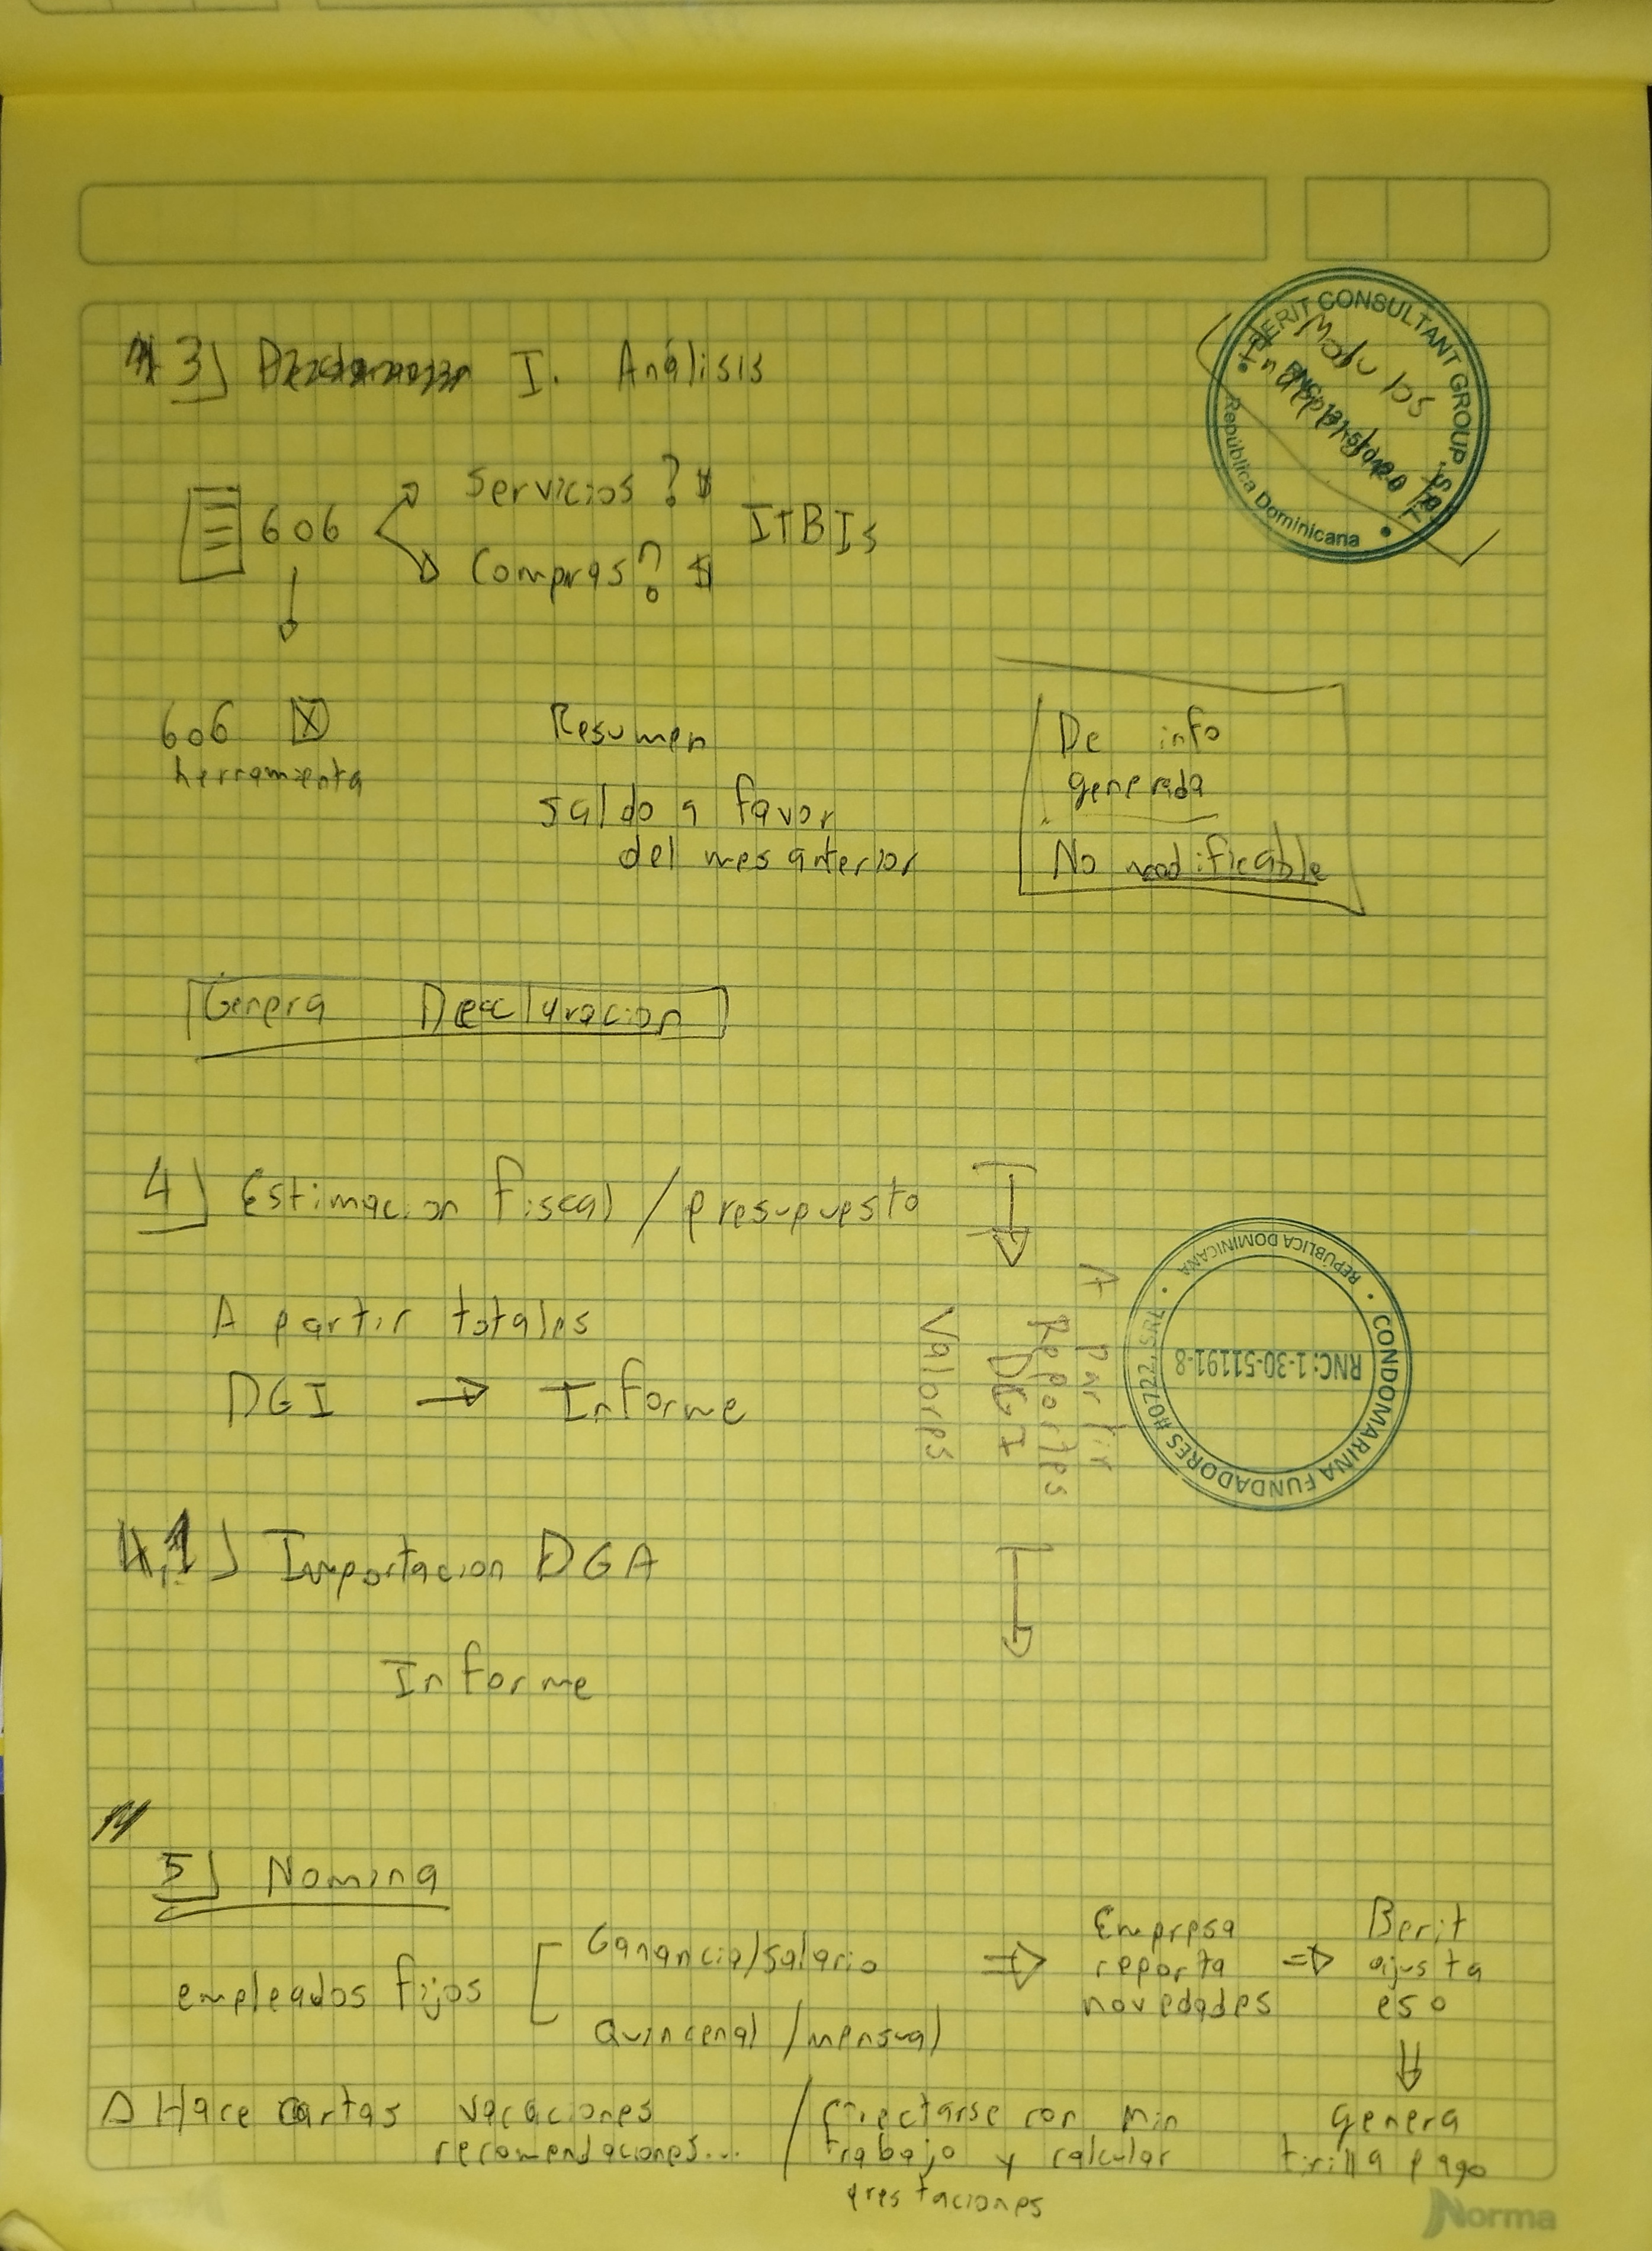 3) I. Análisis
BERIT CONSULTANT GROUP, SRL
República Dominicana
Servicios? $
606
ITBIs
Compras? $
606 X
herramienta
Resumen
saldo a favor
del mes anterior
De info
generada
No modificable
Genera Declaracion
4) Estimacion fiscal / presupuesto
A partir totales
DGI → Informe
A partir
Reportes
DGI
Valores
CONDOMARINA FUNDADORES H0722, SRL
REPÚBLICA DOMINICANA
RNC: 1-30-51191-8
4.1) Importacion DGA
Informe
5) Nomina
empleados fijos
Ganancia/salario
Quincenal / mensual
⇒
Empresa
reporta
novedades
⇒
Berit
ajusta
eso
Hace cartas vacaciones
recomendaciones...
/ conectarse con Min
trabajo y calcular
prestaciones
genera
tirilla pago
Norma